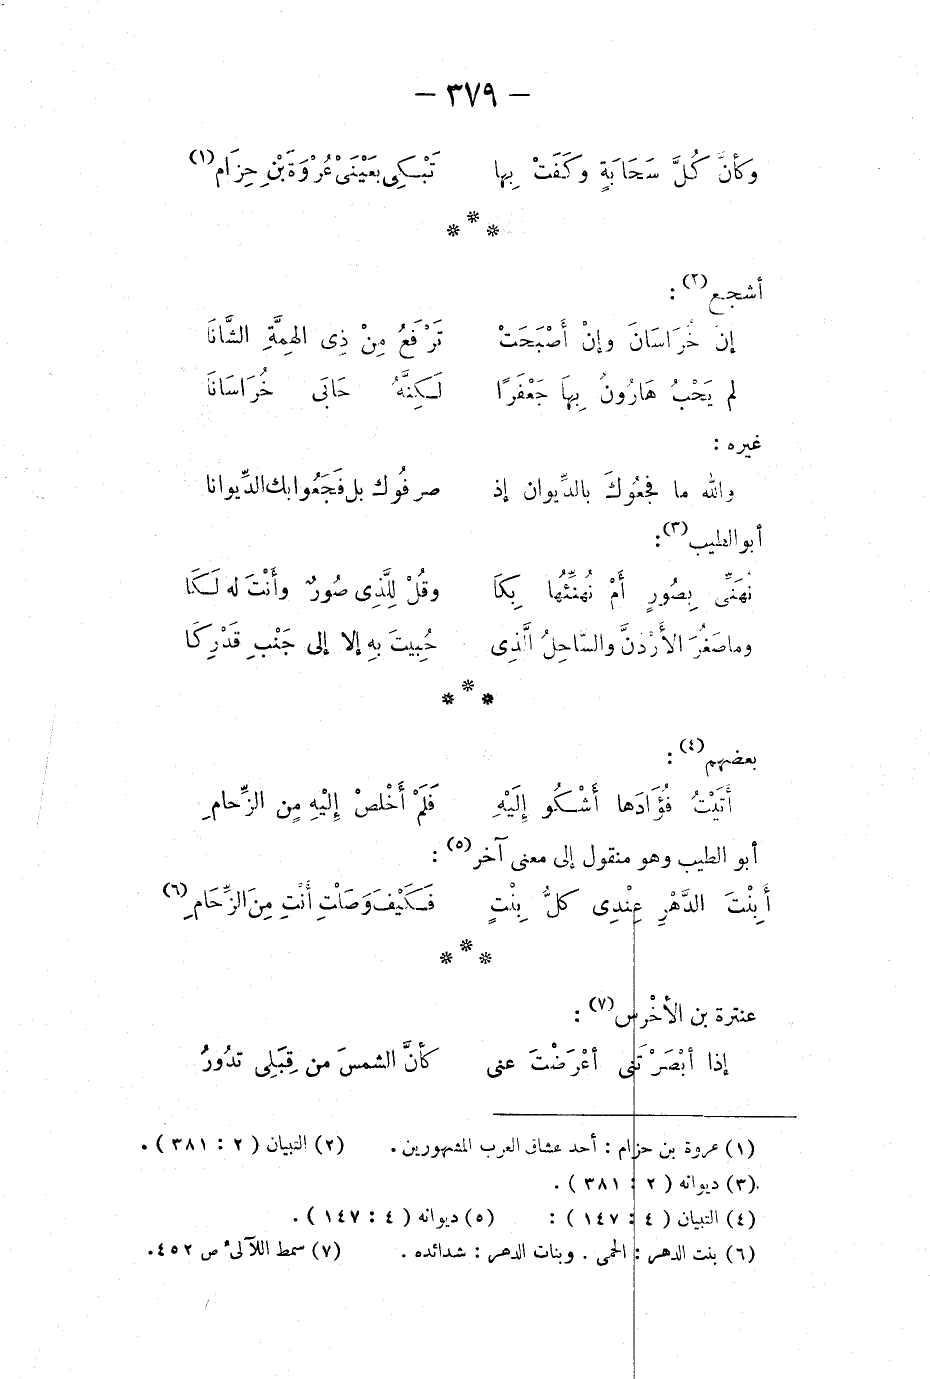 — ٣٧٩ —
وكأنَّ كُلَّ سَحَابَةٍ وكَفَتْ بِها تَبْـكِي بعَيْنَىْ عُرْوَةَ بْنِ حِزَام (١)
* * *
أشجع (٢) :
إن خُرَاسَانَ وإنْ أَصْبَحَتْ تَرْفَعُ مِنْ ذِى الهِمَّةِ الشَّانَا
لم يَحْبُ هَارُونُ بِهاَ جَعْفَرًا لَـكِنَّهُ حَابَى خُرَاسَانَا
غيره :
والله ما فجعُوكَ بالدِّيوان إذ صرفُوك بل فَجَعُوا بك الدِّيوانا
أبو الطيب (٣) :
نُهَنَّى بِصُورٍ أَمْ نُهنِّئُها بِكَا وقُلْ لِلَّذِى صُورٌ وأَنْتَ له لَـكَا
وما صَغُرَ الأَرْدنَّ والسَّاحِلُ الَّذِى حُبِيتَ بِهِ إلا إلى جَنْبِ قَدْرِكَا
* * *
بعضهم (٤) :
أَتَيْتُ فُؤَادَها أَشْـكُو إِلَيْهِ فَلَمْ أَخْلصْ إِلَيْهِ مِنٍ الزِّحامِ
أبو الطيب وهو منقول إلى معنى آخر (٥) :
أَبِنْتَ الدَّهْرِ عِنْدِى كلُّ بِنْتٍ فَـكَيْفَ وَصَلْتِ أَنْتِ مِنَ الزِّحَامِ (٦)
* * *
عنترة بن الأخْرس (٧) :
إذا أبْصَرْتَنِى أعْرَضْتَ عنى كأنَّ الشمسَ من قِبَلِى تدُورُ
(١) عروة بن حزام : أحد عشاق العرب المشهورين . (٢) التبيان ( ٢ : ٣٨١ ) .
(٣) ديوانه ( ٢ : ٣٨١ ) .
(٤) التبيان ( ٤ : ١٤٧ ) : (٥) ديوانه ( ٤ : ١٤٧ ) .
(٦) بنت الدهر : الحمى . وبنات الدهر : شدائده . (٧) سمط اللآلىء ص ٤٥٢ .